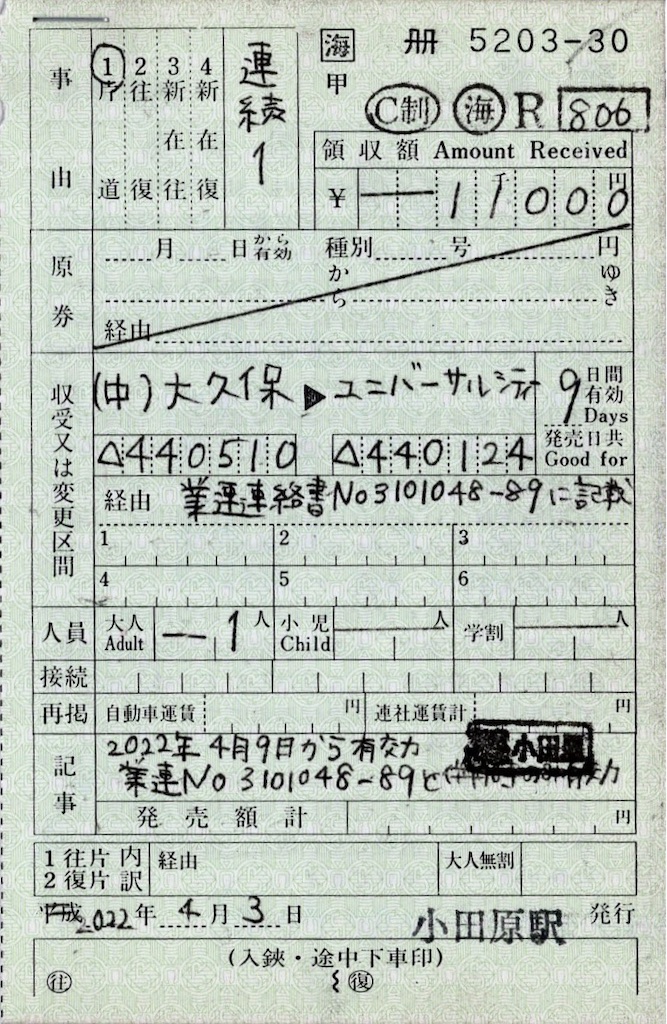 海 冊 5203-30
事由
1 片道
2 往復
3 新在往
4 新在復
連続1
甲
C制 海 R 806
領収額 Amount Received
¥ 千 円
11000
原券
月 日 から有効 種別 号 円
から ゆき
経由
収受又は変更区間
(中)大久保▶ユニバーサルシティ
9日間有効 Days
発売日共 Good for
△440510 △440124
経由 業連連絡書No3101048-89に記載
1 2 3
4 5 6
人員 大人 Adult 1人 小児 Child 人 学割 人
接続
再掲 自動車運賃 円 連社運賃計 円
記事
2022年4月9日から有効
小田原
業連No3101048-89と 有効
発売額計 円
1往片 内
2復片 訳
経由 大人無割
平成 2022年 4月 3日 小田原駅 発行
(入鋏・途中下車印)
往 復